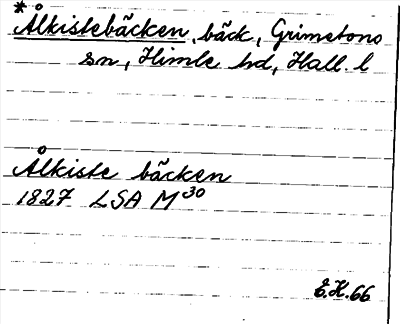 * Ålkistebäcken, bäck, Grimetons
sn, Himle hd, Hall. l
Ålkiste bäcken
1827 LSA M30
E.H. 66